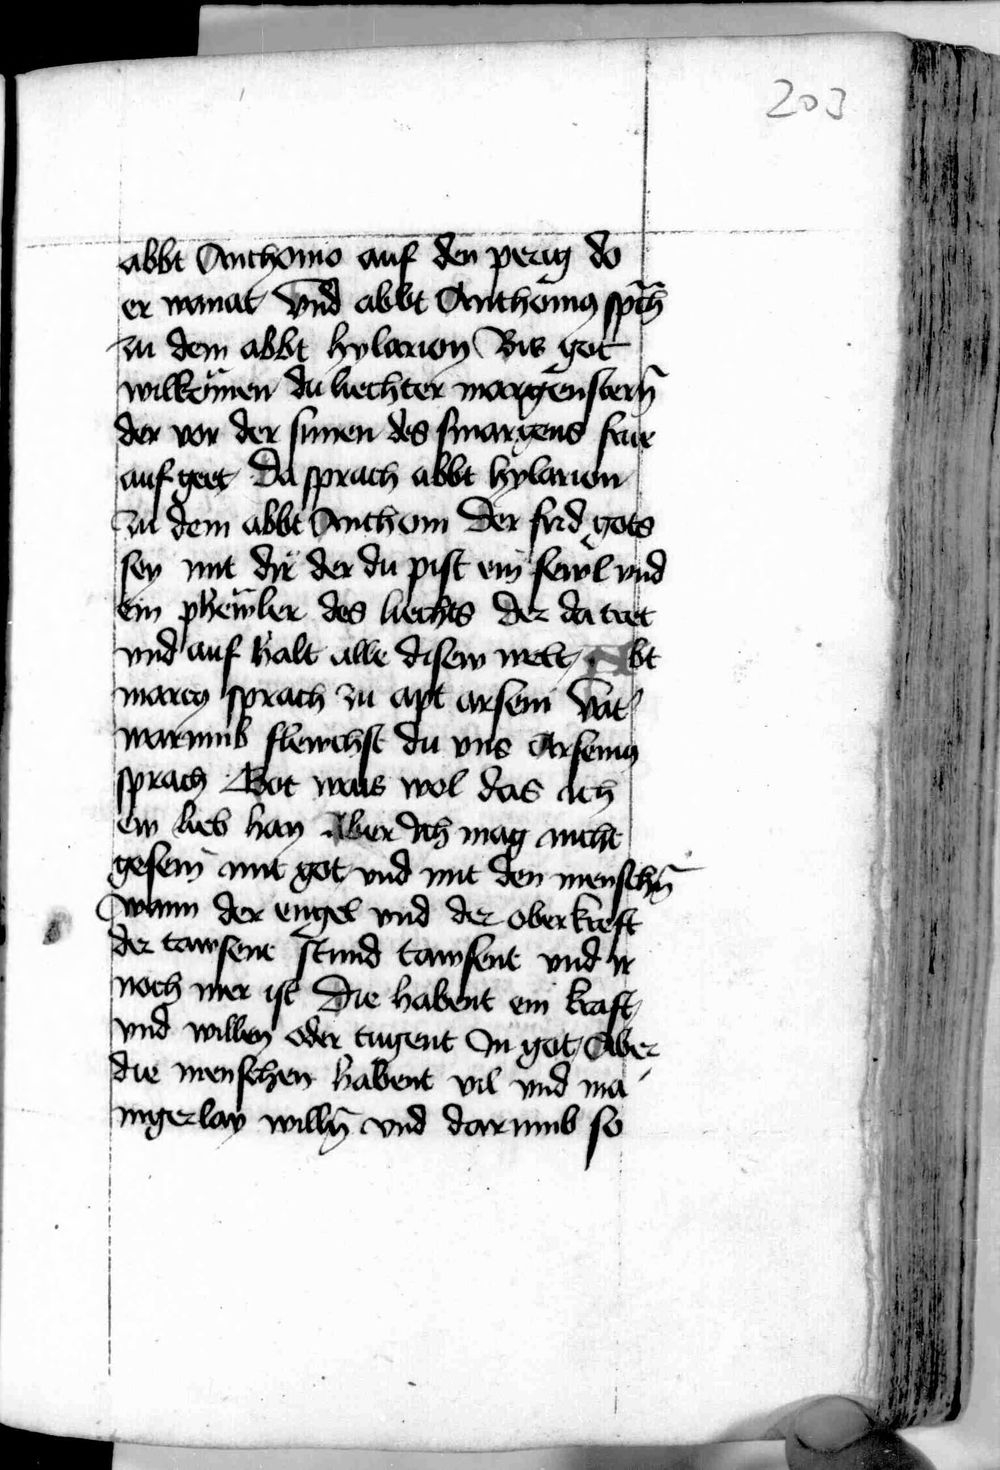 203
abbt Anthonio auf den perig do
er wanat Vnd abbt Anthoniꝰ sp̃ch
zu dem abbt hylarion Bis got
wilkömen du liechter margenstern̄
der vor der sunen des smargens frue
auf geet Da sprach abbt hylarion
zu dem abbt Anthoni Der frid gots
sey mit dir der du pist ein sewl vnd
ein phewler des liechts der da tret
vnd auf halt alle disew welt Abt
marcꝰ sprach zu apt arseni Vat̓
warumb flewchst du vns Arseniꝰ
sprach Got wais wol das ich
ew lieb han Aber Ich mag nicht
gesein mit got vnd mit den mensch̄n
wann der engel vnd der oberkreft
der tawsent stund tawsent vnd ir
noch mer ist Die habent ein kraft
vnd willen oder tugent In got Aber
die menschen habent vil vnd ma
nigerlay willn̄ vnd darumb so